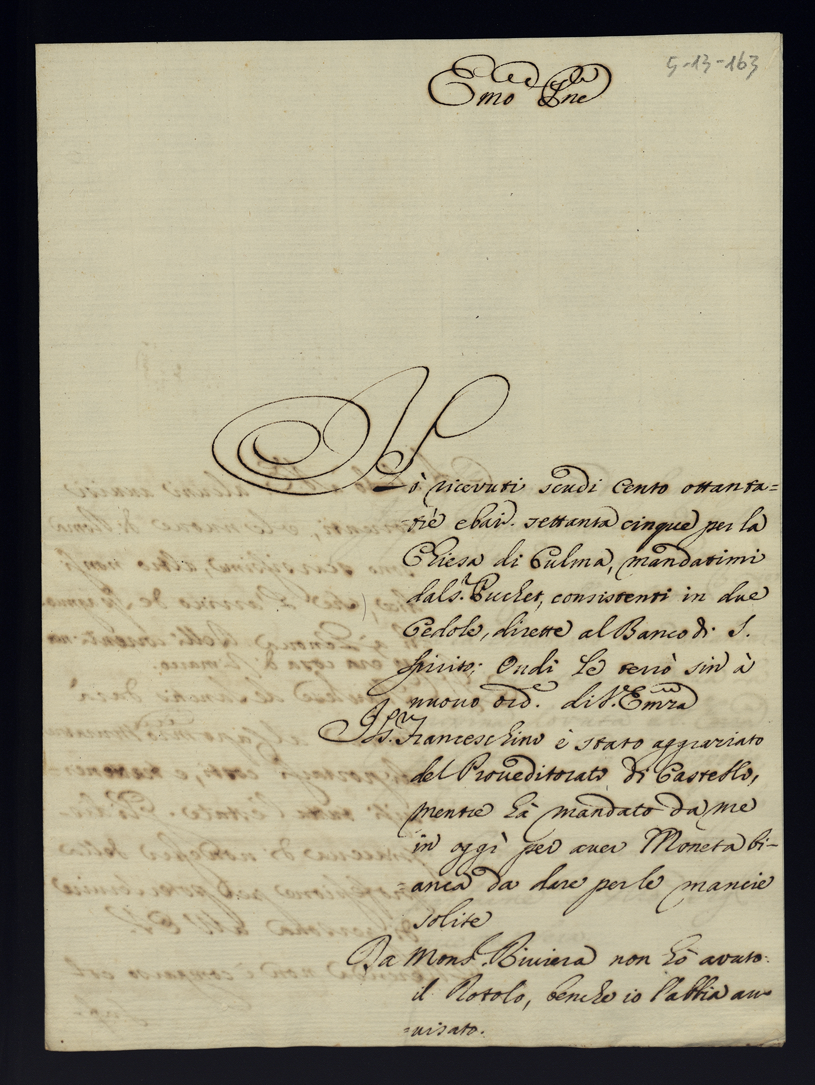 5-13-163
Emo Pne
Hò ricevuti scudi Cento ottanta=
=tre e bai. settanta cinque per la
Chiesa di Culma, mandatimi
dal S.r Pucher, consistenti in due
Cedole, dirette al Banco di S.
Spirito. Onde le terrò sin à
nuovo ord.e di V. Emza
Il S.r Franceschino è stato aggraziato
del Proveditorato di Castello,
mentre hà mandato da me
in oggi per aver Moneta bi-
anca da dare per le mancie
solite
Da Mons.r Riviera non hò avuto
il Rotolo, benche io l'abbia au-
=uisato.